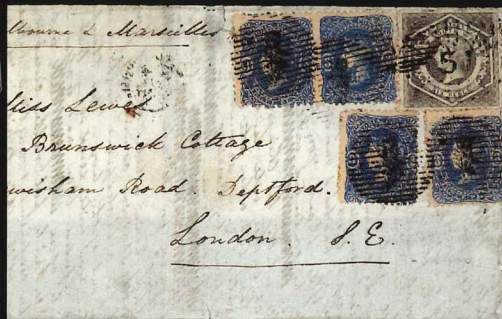 lbourne & Marseilles
Miss Lewes
Brunswick Cottage
wisham Road. Deptford.
London. S.E.
5